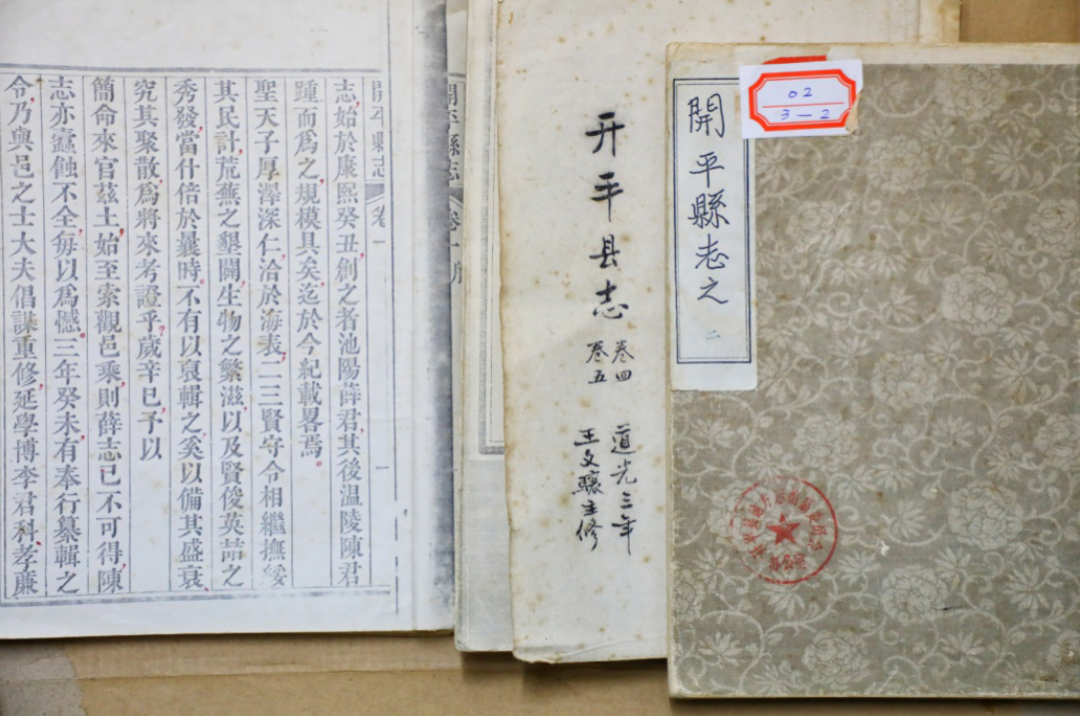 02
3—2
開平縣志之 二
开平县志
卷四
卷五
道光三年
王文驤主修
開平縣志 卷十 序
開平縣志 卷一
一
志,始於康熙癸丑,創之者池陽薛君,其後温陵陳君
踵而爲之,規模具矣,迄於今紀載畧焉。
聖天子厚澤深仁,洽於海表,二三賢守令相繼撫綏
其民計,荒蕪之墾闢,生物之繁滋,以及賢俊英喆之
秀發,當什倍於曩時,不有以裒輯之,奚以備其盛衰,
究其聚散,爲將來考證乎,歲辛巳,予以
簡命來官茲土,始至索觀邑乘,則薛志已不可得,陳
志亦蠹蝕不全,每以爲憾。三年癸未,有奉行纂輯之
令,乃與邑之士大夫倡謀重修,延學博李君科,孝廉